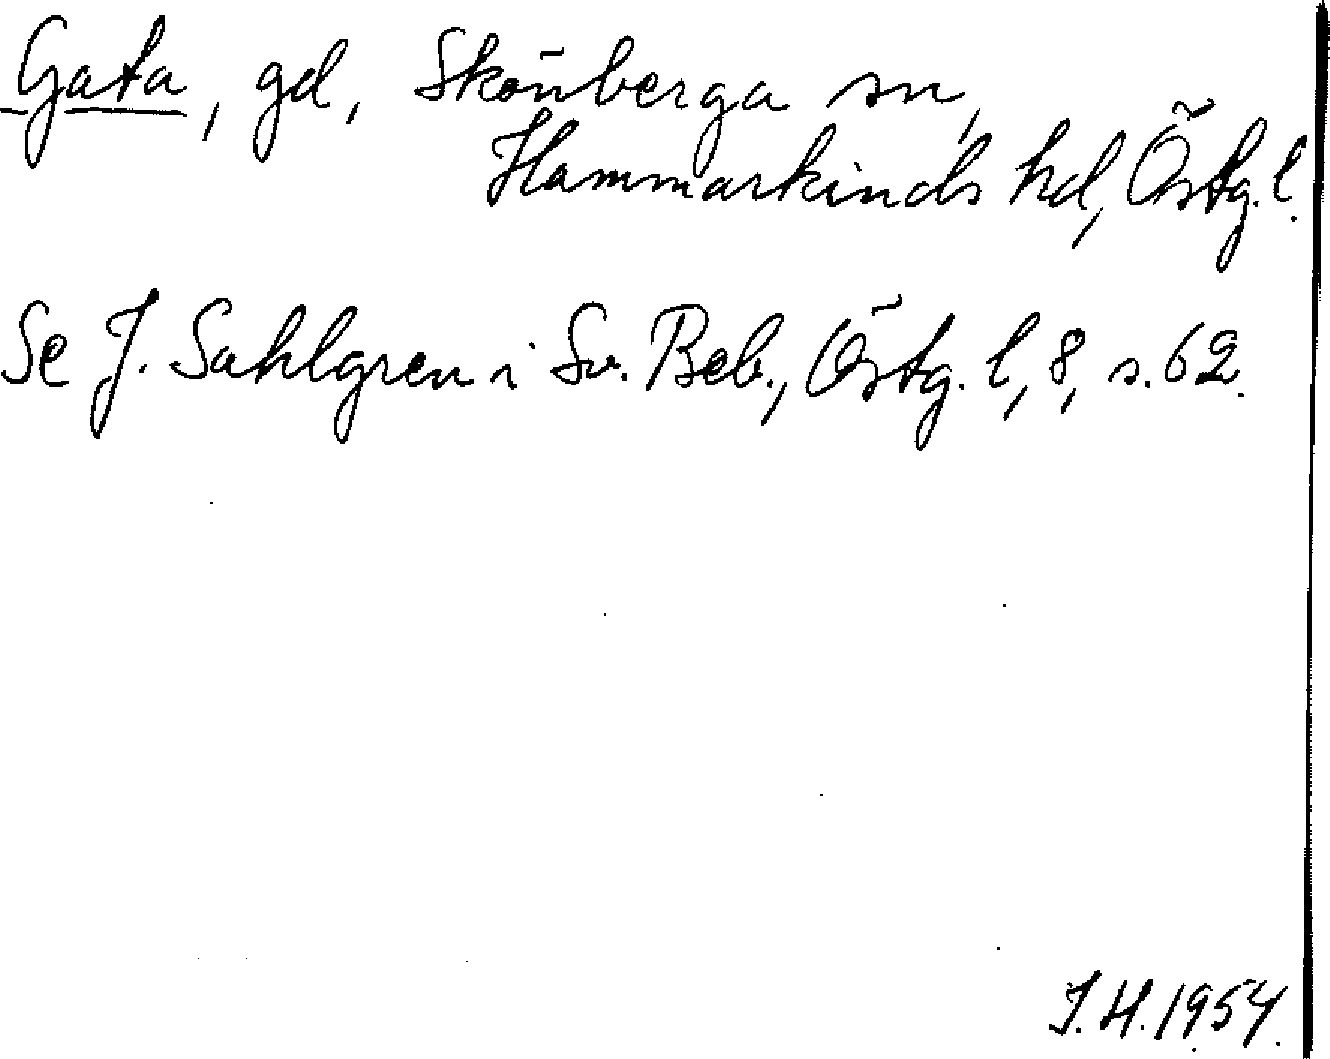 Gata, gd, Skönberga sn,
Hammarkinds hd, Östg. l.
Se J. Sahlgren i Sv. Beb., Östg. l, 8, s. 62.
J. H. 1954.